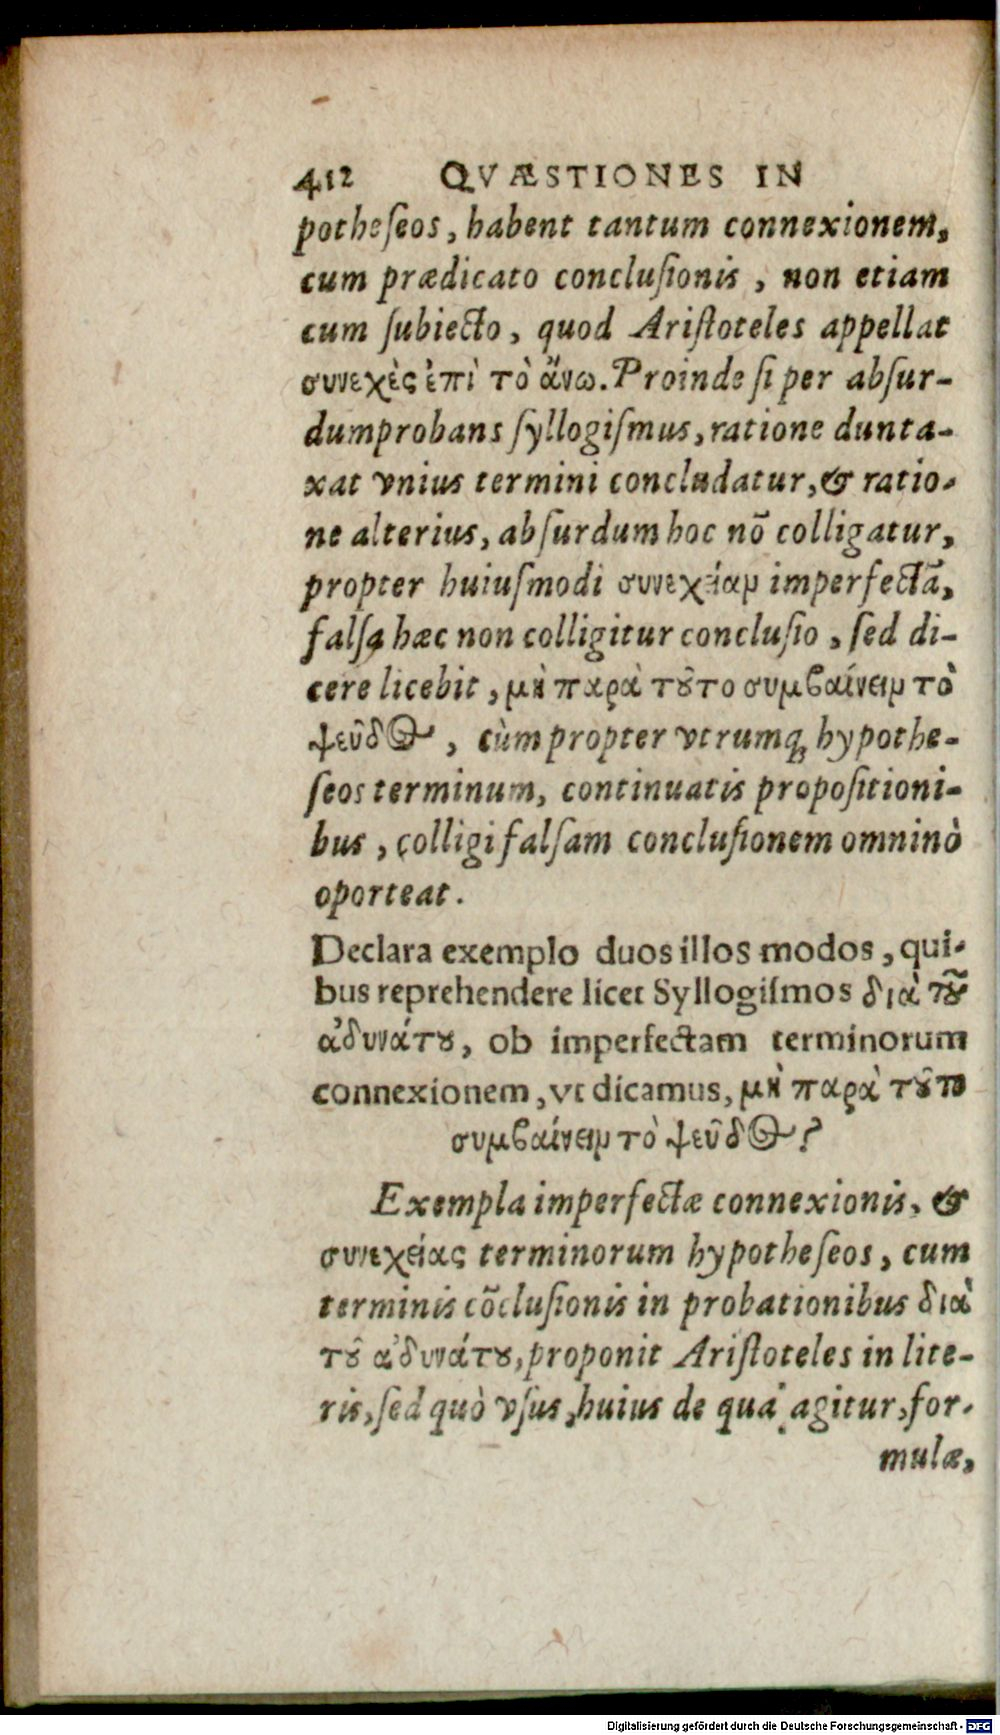 412 QVÆSTIONES IN
potheſeos, habent tantum connexionem,
cum prædicato concluſionis, non etiam
cum ſubiecto, quod Ariſtoteles appellat
συνεχὲς ἐπὶ τὸ ἄνω. Proinde ſi per abſur-
dumprobans ſyllogiſmus, ratione dunta-
xat vnius termini concludatur, & ratio-
ne alterius, abſurdum hoc nõ colligatur,
propter huiuſmodi συνεχείαμ imperfectã,
falſa hæc non colligitur concluſio, ſed di-
cere licebit, μὴ παρὰ τȣ̃το συμβαίνειμ τὸ
ψεῦδος, cùm propter vtrumq; hypothe-
ſeos terminum, continuatis propoſitioni-
bus, colligi falſam concluſionem omninò
oporteat.
Declara exemplo duos illos modos, qui-
bus reprehendere licet Syllogiſmos διὰ τȣ̃
ἀδυνάτȣ, ob imperfectam terminorum
connexionem, vt dicamus, μὴ παρὰ τȣ̃το
συμβαίνειμ τὸ ψεῦδος?
Exempla imperfectæ connexionis, &
συνεχείας terminorum hypotheſeos, cum
terminis cõcluſionis in probationibus διὰ
τȣ̃ ἀδυνάτȣ, proponit Ariſtoteles in lite-
ris, ſed quò vſus, huius de qua agitur, for-
mulæ,
Digitalisierung gefördert durch die Deutsche Forschungsgemeinschaft - DFG